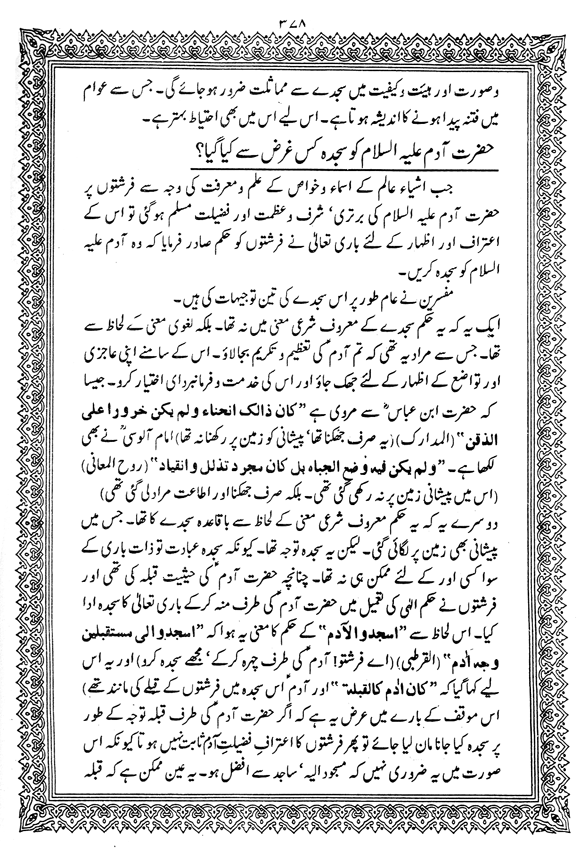 ۳۷۸
وصورت اور ہیئت وکیفیت میں سجدے سے مماثلت ضرور ہو جائے گی۔ جس سے عوام
میں فتنہ پیدا ہونے کا اندیشہ ہوتا ہے۔ اس لیے اس میں بھی احتیاط بہتر ہے۔
حضرت آدم علیہ السلام کو سجدہ کس غرض سے کیا گیا؟
جب اشیاء عالم کے اسماء وخواص کے علم ومعرفت کی وجہ سے فرشتوں پر
حضرت آدم علیہ السلام کی برتری‘ شرف وعظمت اور فضیلت مسلم ہو گئی تو اس کے
اعتراف اور اظہار کے لئے باری تعالٰی نے فرشتوں کو حکم صادر فرمایا کہ وہ آدم علیہ
السلام کو سجدہ کریں۔
مفسرین نے عام طور پر اس سجدے کی تین توجیہات کی ہیں۔
ایک یہ کہ یہ حکم سجدے کے معروف شرعی معنی میں نہ تھا۔ بلکہ لغوی معنٰی کے لحاظ سے
تھا۔ جس سے مراد یہ تھی کہ تم آدم ؑ کی تعظیم و تکریم بجالاؤ۔ اس کے سامنے اپنی عاجزی
اور تواضع کے اظہار کے لئے جھک جاؤ اور اس کی خدمت و فرمانبرداری اختیار کرو۔ جیسا
کہ حضرت ابن عباس ؓ سے مروی ہے ”کان ذالک انحناء ولم یکن خرورا علی
الذقن“ (المدارک) (یہ صرف جھکنا تھا‘ پیشانی کو زمین پر رکھنا نہ تھا) امام آلوسی ؒ نے بھی
لکھا ہے۔ ”ولم یکن فیہ وضع الجباہ بل کان مجرد تذلل وانقیاد“ (روح المعانی)
(اس میں پیشانی زمین پر نہ رکھی گئی تھی۔ بلکہ صرف جھکنا اور اطاعت مراد لی گئی تھی)
دوسرے یہ کہ یہ حکم معروف شرعی معنٰی کے لحاظ سے باقاعدہ سجدے کا تھا۔ جس میں
پیشانی بھی زمین پر لگائی گئی۔ لیکن یہ سجدہ توجہ تھا۔ کیونکہ سجدہ عبادت تو ذات باری کے
سوا کسی اور کے لئے ممکن ہی نہ تھا۔ چنانچہ حضرت آدم ؑ کی حیثیت قبلہ کی تھی اور
فرشتوں نے حکم الٰہی کی تعمیل میں حضرت آدم ؑ کی طرف منہ کر کے باری تعالٰی کا سجدہ ادا
کیا۔ اس لحاظ سے ”اسجدوالآدم“ کے حکم کا معنی یہ ہوا کہ ”اسجدوالی مستقبلین
وجہ ادم“ (القرطبی) (اے فرشتو! آدم ؑ کی طرف چہرہ کر کے‘ مجھے سجدہ کرو) اور یہ اس
لیے کہا گیا کہ ”کان ادم کالقبلۃ“ اور آدم ؑ اس سجدہ میں فرشتوں کے قبلے کی مانند تھے)
اس موقف کے بارے میں عرض یہ ہے کہ اگر حضرت آدم ؑ کی طرف قبلہ توجہ کے طور
پر سجدہ کیا جانا مان لیا جائے تو پھر فرشتوں کا اعترافِ فضیلتِ آدم ؑ ثابت نہیں ہوتا کیونکہ اس
صورت میں یہ ضروری نہیں کہ مسجود الیہ‘ ساجد سے افضل ہو۔ یہ عین ممکن ہے کہ قبلہ